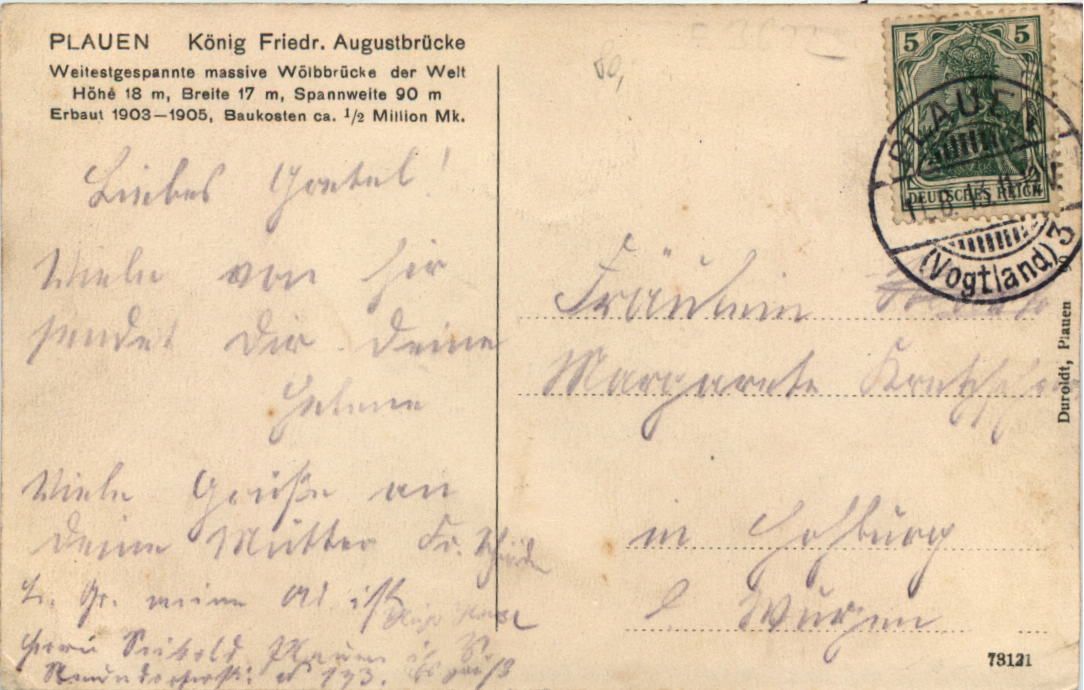 PLAUEN König Friedr. Augustbrücke
Weitestgespannte massive Wölbbrücke der Welt
Höhe 18 m, Breite 17 m, Spannweite 90 m
Erbaut 1903—1905, Baukosten ca. 1/2 Million Mk.
Liebes Gretel!
Viele von hir
sendet Dir Deine
Helene
Viele Grüße an
Deine Mutter Fr.
meine Ad. ist
Plauen i.
5 5
DEUTSCHES REICH
PLAUEN
(Vogtland) 3
Fräulein
Margarete
in Hohburg
b Wurzen
Duroldt, Plauen
73121